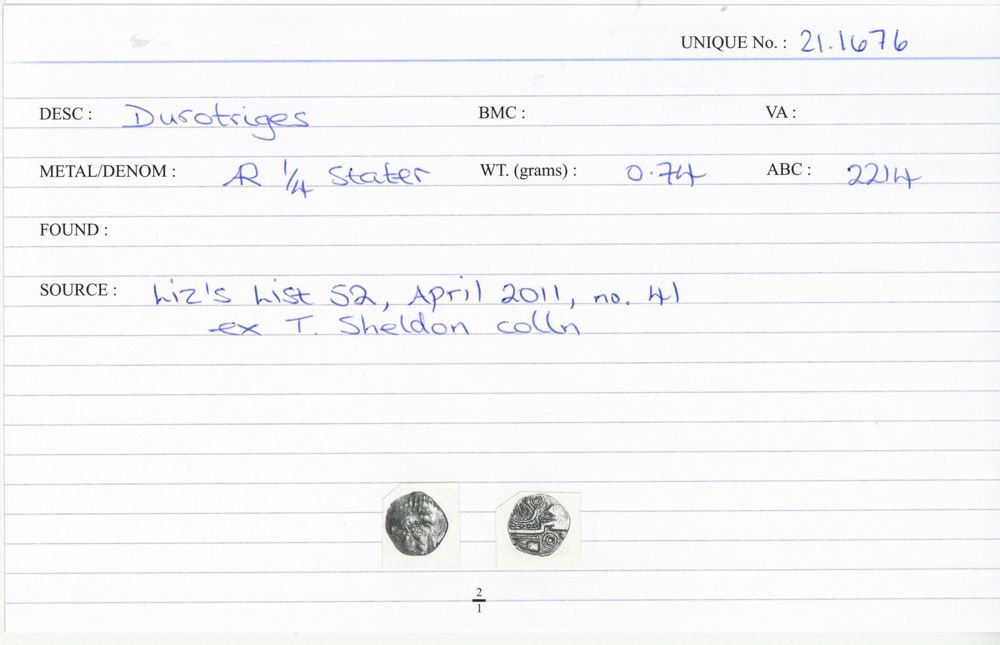 UNIQUE No. : 21.1676
DESC : Durotriges BMC : VA :
METAL/DENOM : AR 1/4 Stater WT. (grams) : 0.74 ABC : 2214
FOUND :
SOURCE : Liz's List 52, April 2011, no. 41
ex T. Sheldon colln
2
1